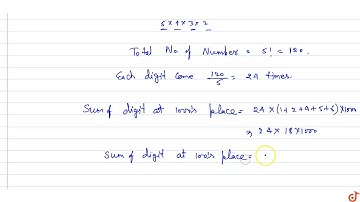 5 x 4 x 3 x 2
Total No of Number = 5! = 120.
Each digit come 120/5 = 24 times.
Sum of digit at 1000's place = 24 x (1+2+4+5+6) x 1000
⇒ 24 x 18 x 1000
Sum of digit at 100's place =